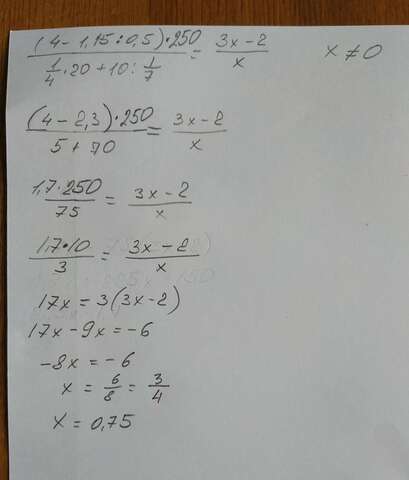 (4 - 1,15 : 0,5) · 250 / (1/4 · 20 + 10 : 1/7) = (3x - 2)/x    x ≠ 0
(4 - 2,3) · 250 / (5 + 70) = (3x - 2)/x
1,7 · 250 / 75 = (3x - 2)/x
1,7 · 10 / 3 = (3x - 2)/x
17x = 3(3x - 2)
17x - 9x = -6
-8x = -6
x = 6/8 = 3/4
x = 0,75